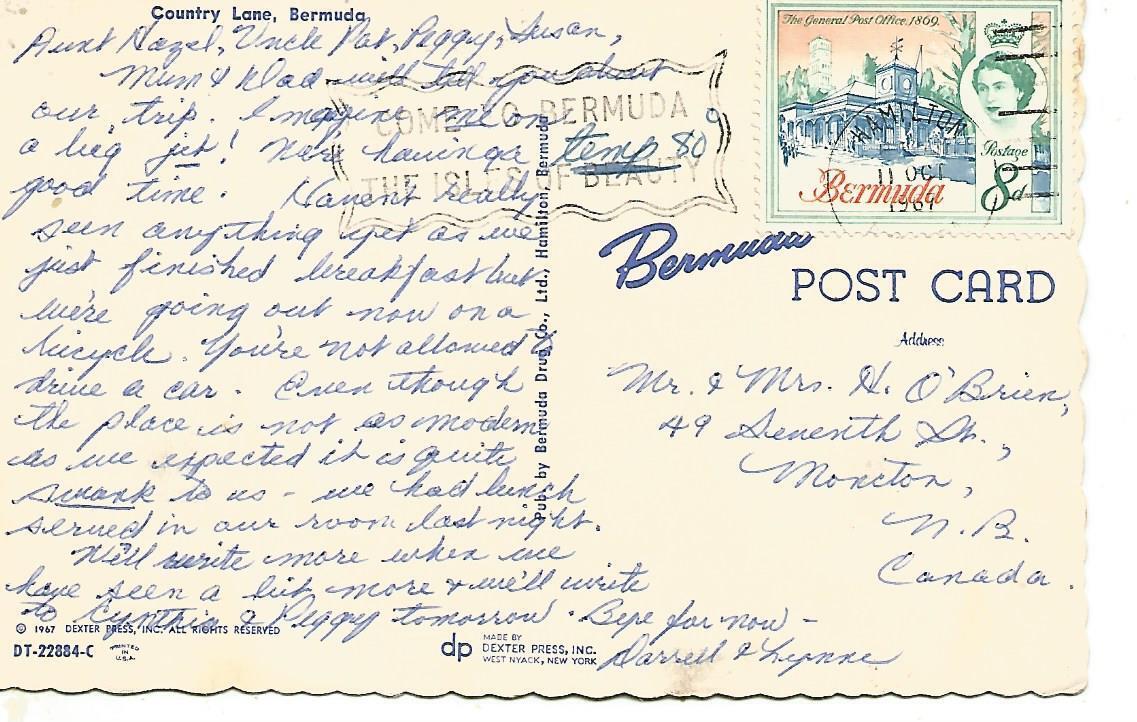 Country Lane, Bermuda
Aunt Hazel, Uncle Pat, Peggy, Susan,
Mum & Dad will tell you about
our trip. Imagine me on
a big jet! We're having a temp 80°
good time. Haven't really
seen anything yet as we
just finished breakfast but
we're going out now on a
bicycle. You're not allowed to
drive a car. Even though
the place is not as modern
as we expected it is quite
swank to us - we had lunch
served in our room last night.
We'll write more when we
have seen a bit more & we'll write
to Cynthia & Peggy tomorrow. Bye for now -
Darrell & Lynne
© 1967 DEXTER PRESS, INC. ALL RIGHTS RESERVED
DT-22884-C
PRINTED IN U.S.A.
dp
MADE BY
DEXTER PRESS, INC.
WEST NYACK, NEW YORK
Pub. by Bermuda Drug Co., Ltd., Hamilton, Bermuda
COME TO BERMUDA
THE ISLES OF BEAUTY
The General Post Office, 1869.
HAMILTON
11 OCT
1967
Postage
Bermuda
8d
Bermuda
POST CARD
Address
Mr. & Mrs. H. O'Brien,
49 Seventh St.,
Moncton,
N.B.
Canada.